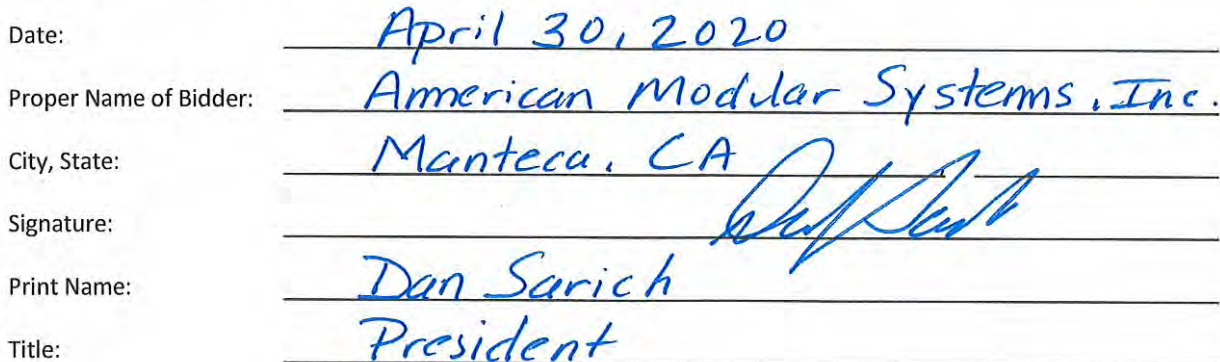 Date: April 30, 2020
Proper Name of Bidder: American Modular Systems, Inc.
City, State: Manteca, CA
Signature:
Print Name: Dan Sarich
Title: President